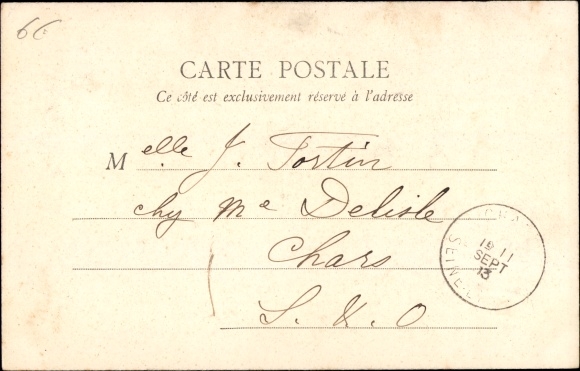 66
CARTE POSTALE
Ce côté est exclusivement réservé à l'adresse
Melle J. Fortin
chy Me Delisle
Chars
S. & O
19 11
SEPT
13
SEINE